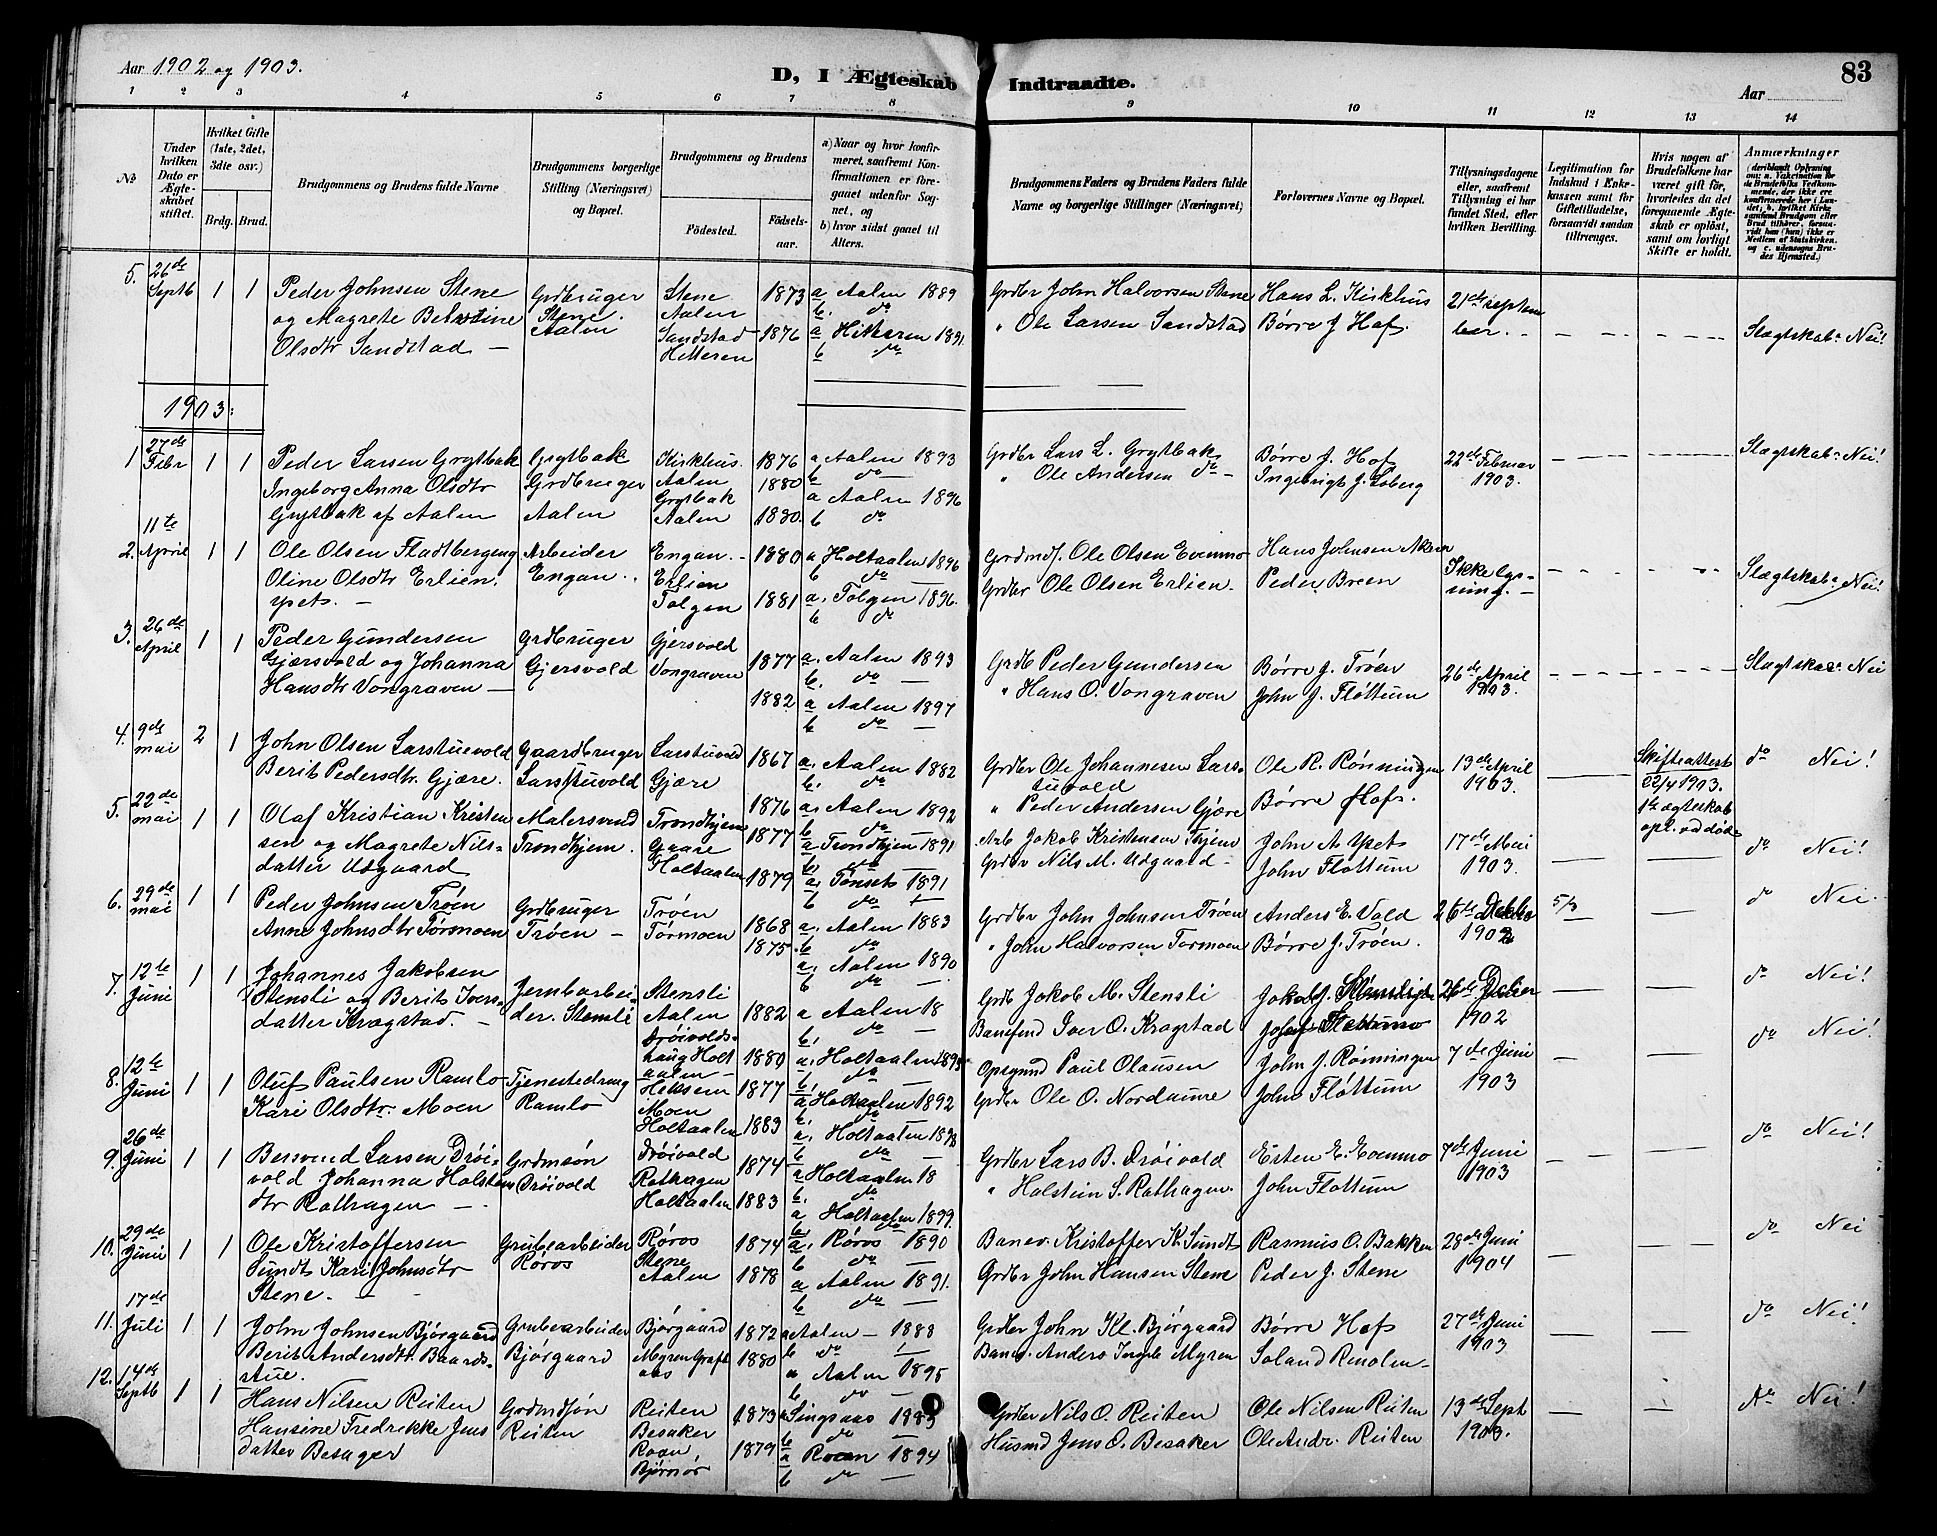 Aar 1902 og 1903.
D, I Ægteskab Indtraadte.
83
Aar
1 2 3 4 5 6 7 8 9 10 11 12 13 14
No
Under hvilken Dato er Ægteskabet stiftet.
Hvilket Gifte (1ste, 2det, 3die osv.)
Brdg. Brud.
Brudgommens og Brudens fulde Navne
Brudgommens borgerlige Stilling (Næringsvei) og Bopæl.
Brudgommens og Brudens
Fødested.
Fødselsaar.
a) Naar og hvor konfirmeret, saafremt Konfirmationen er foregaaet udenfor Sognet, og
b) hvor sidst gaaet til Alters.
Brudgommens Faders og Brudens Faders fulde Navne og borgerlige Stillinger (Næringsvei)
Forlovernes Navne og Bopæl.
Tillysningsdagene eller, saafremt Tillysning ei har fundet Sted, efter hvilken Bevilling.
Legitimation for Indskud i Enkekassen samt for Giftetilladelse, forsaavidt saadan tiltrænges.
Hvis nogen af Brudefolkene har været gift før, hvorledes da det foregaaende Ægteskab er opløst, samt om lovligt Skifte er holdt.
Anmærkninger
5. 26de Septb 1 1 Peder Johnsen Stene Grdbruger Stene 1873 a Aalen 1889 Grdbr John Halvorsen Stene Hans L. Kirkhus 21de septem
og Magrete Bentine Stene. Aalen b. do " Ole Larsen Sandstad Børre J Hof. ber. Slægtskab: Nei!
Olsdtr Sandstad — Aalen Sandstad 1876 a Hitteren 1891.
Hitteren b do
1903:
1 27de Febr 1 1 Peder Larsen Grytbak Grytbak Kirkhus 1876 a Aalen 1893 Grdbr Lars L. Grytbak Børre J. Hof 22de Februar Slægtskab: Nei!
Ingeborg Anna Olsdtr Grdbruger Aalen 1880 b do " Ole Andersen do Ingebrigt J. Loberg 1903.
Grytbak af Aalen Aalen Grytbak a Aalen 1896
Aalen 1880. b do
2. 11te April 1 1 Ole Olsen Fladtbergeng Arbeider Engan. 1880 a Holtaalen 1896 Grdmd. Ole Olsen Evenmo Hans Johnsen Ikke lys-
Oline Olsdtr Erlien. Engan. Erlien b do Grdbr Ole Olsen Erlien. Peder Breen ning. Slægtskab: Nei!
Tolgen 1881 a. Tolgen 1896.
b do
3. 26de April 1 1 Peder Gundersen Grdbruger Gjersvold 1877 a. Aalen 1893 Grdb Peder Gundersen Børre J. Trøen 26de April Slægtskab: Nei
Gjærsvold og Johanna Gjersvold Vongraven b. do " Hans O. Vongraven John J. Fløttum 1903.
Hansdtr Vongraven — 1882 a Aalen 1897
b do
4. 9de mai 2 1 John Olsen Larstuevold Gaardbruger Larstuvold 1867 a. Aalen 1882 Grdbr Ole Johannesen Lars- Ole R. Rønningen 13de April Skifteattest do Nei!
Berit Pedersdtr. Gjære. Larstuvold Gjære b. do tuvold 1903. 22/4 1903.
1876 a. Aalen 1892 " Peder Andersen Gjære Børre J Hof. 1te ægteskab
opl. ved død
5. 22de mai 1 1 Olaf Kristian Kristen Malersvend Trondhjem 1877 a Trondhjem 1891 Arb Jakob Kristensen Thjem John A Ypet 17de Mai do Nei!
sen og Magrete Nils- Trondhjem. Gaare b do Grdbr Nils M. Udgaard John Fløttum 1903.
datter Udgaard Holtaalen 1879 a. Tønset 1891
b do
6. 29de mai 1 1 Peder Johnsen Trøen Grdbruger Trøen 1868 a. Aalen 1883 Grdbr John Johnsen Trøen Anders E. Vold 26de Decbr 5/3 do Nei.
Anne Johnsdtr Tørmoen Trøen Tørmoen 1875. b do " John Halvorsen Tormoen Børre J. Trøen. 1902
a. Aalen 1890
b do
7. 12te Juni 1 1 Johannes Jakobsen Jernbarbei- Stensli 1882 a Aalen 18 Grdb Jakob M. Stensli 26de Decber do Nei!
Stensli og Berit Ivers- der. Stensli Aalen b. do Banefmd Iver O. Kragstad 1902
datter Kragstad. Drøivolds-
haug Holt 1880 a. Holtaalen
aalen b do
8. 12te Juni 1 1 Oluf Paulsen Ramlo Tjenestedreng Heksem 1877 a Holtaalen 1892 Opsynmd Paul Olausen John J. Rønningen 7de Juni do Nei!
Kari Olsdtr. Moen Ramlo Moen b. do Grdbr Ole O. Nordaune John Fløttum 1903
Holtaalen 1883 a. Holtaalen 1898
b do
9. 26de Juni 1 1 Bersvend Larsen Drøi- Grdmsøn Drøivold 1874 a Holtaalen 18 Grdbr Lars B. Drøivold Esten E. Evenmo 7de Juni do Nei!
vold Johanna Holstein Drøivold Rathagen b. do " Holstein S. Rathagen. John Fløttum 1903
dtr Rathagen — Holtaalen 1883 a Holtaalen 1899.
b do
10. 29de Juni 1 1 Ole Kristoffersen Grubearbeider Røros 1874 a. Røros 1890 Banev. Kristoffer K. Sundt Rasmus O. Bakken 28de Juni do Nei
Sundt Kari Johnsdtr Røros Stene b do Grdbr John Hansen Stene Peder J. Stene 1904
Stene. Aalen 1878 a Aalen 1891.
b do
11. 17de Juli 1 1 John Johnsen Bjørgaard Grubearbeider Bjørgaard 1872 a Aalen 1888 Grdbr John Kl. Bjørgaard Børre Hof 27de Juni do Nei!
Berit Andersdtr. Baards- Bjørgaard Myren Graft 1880 b do Banev. Anders Ingebr Myren 1903
stue. aas a Aalen 1895
b do
12. 14de Septb 1 1 Hans Nilsen Reiten Grdmdsøn Reiten 1873 a Singsaas 1889 Grdbr Nils O. Reiten Ole Nilsen Reiten 13de Sept do Nei!
Hansine Fredrikke Jens Reiten Besaker b do Husmd Jens O. Besaker Ole Andr. Reiten 1903.
datter Besager Roan 1879 a Roan 1894
Bjørnør b do